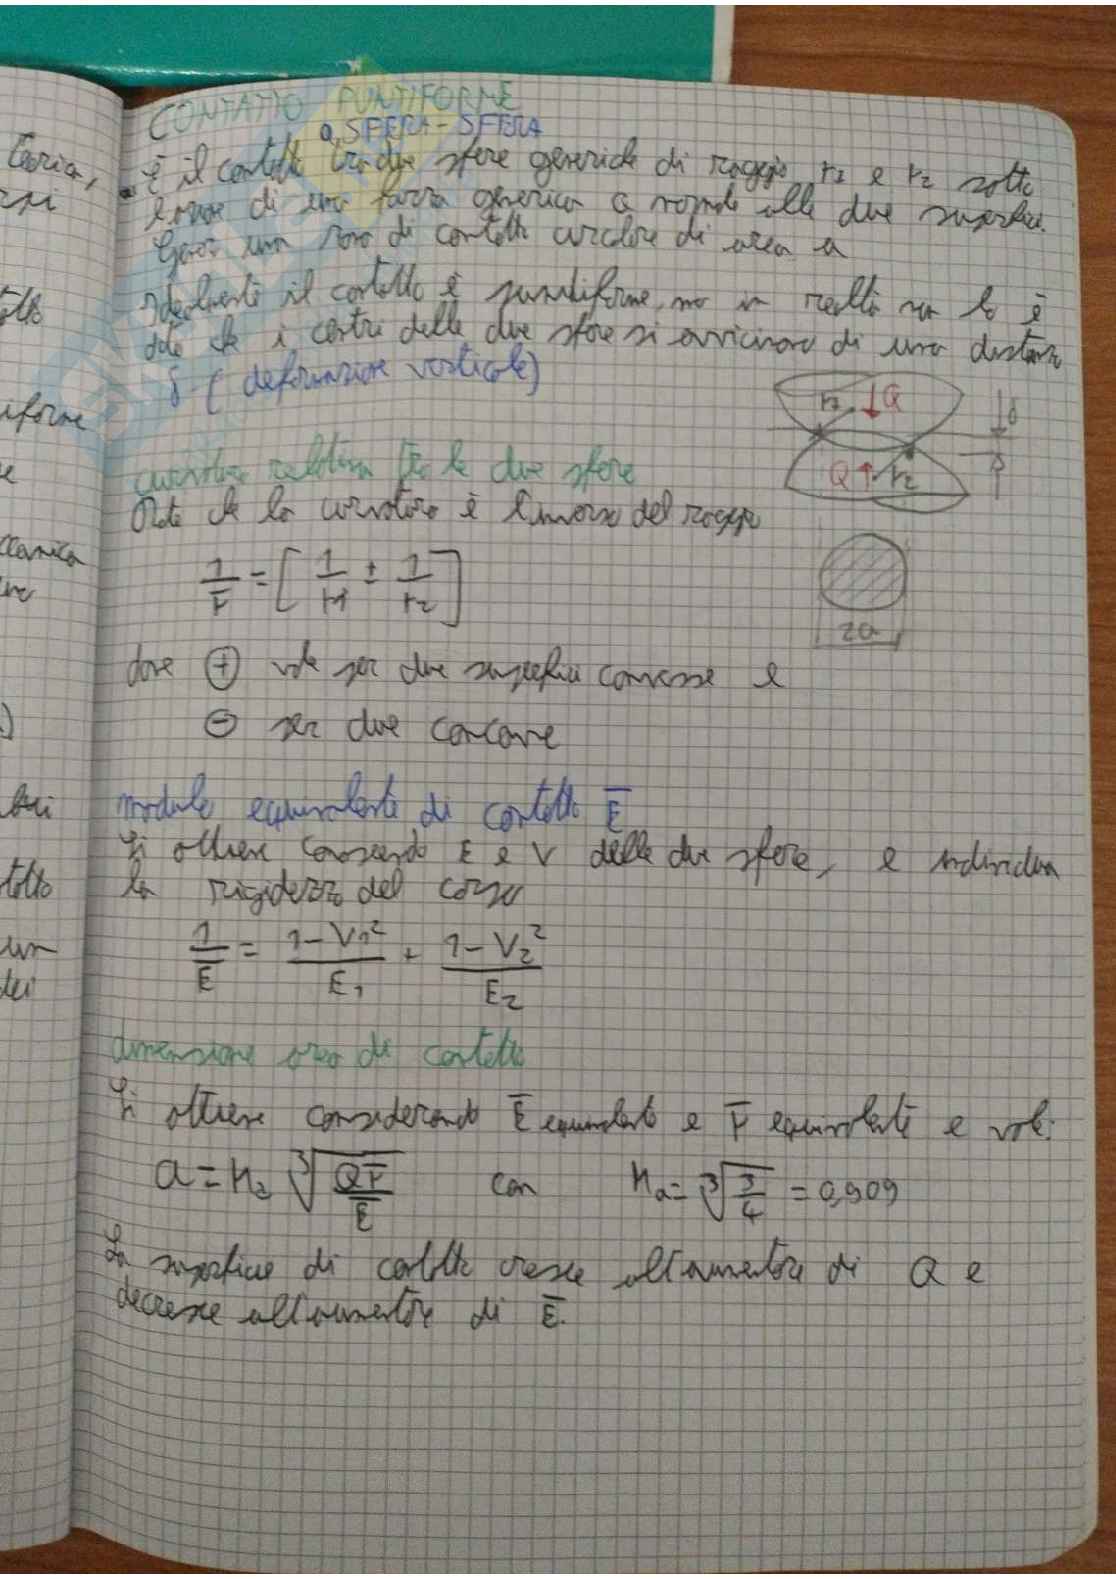 CONTATTO PUNTIFORME
a, SFERA-SFERA
È il contatto tra due sfere generiche di raggio r1 e r2 sotto
di una forza generica Q normale alle due superfici.
Genera una zona di contatto circolare di area a
Idealmente il contatto è puntiforme, ma in realtà non lo è
dato che i centri delle due sfere si avvicinano di una distanza
δ (deformazione verticale)
r1 ↓Q δ
Q↑ r2
curvatura relativa tra le due sfere
Dato che la curvatura è l'inverso del raggio
1/r̅ = [1/r1 ± 1/r2]
2a
dove ⊕ vale per due superfici convesse e
⊖ per due concave
modulo equivalente di contatto E̅
Si ottiene conoscendo E e V delle due sfere, e individua
la rigidezza del corpo
1/E̅ = (1-V1²)/E1 + (1-V2²)/E2
dimensione area di contatto
Si ottiene considerando E̅ equivalente e r̅ equivalente e vale:
a = Ka ∛(Qr̅/E̅) con Ka = ∛(3/4) = 0,909
La superficie di contatto cresce all'aumentare di Q e
decresce all'aumentare di E̅.
Carica,
iforme
ccanica
un
dei